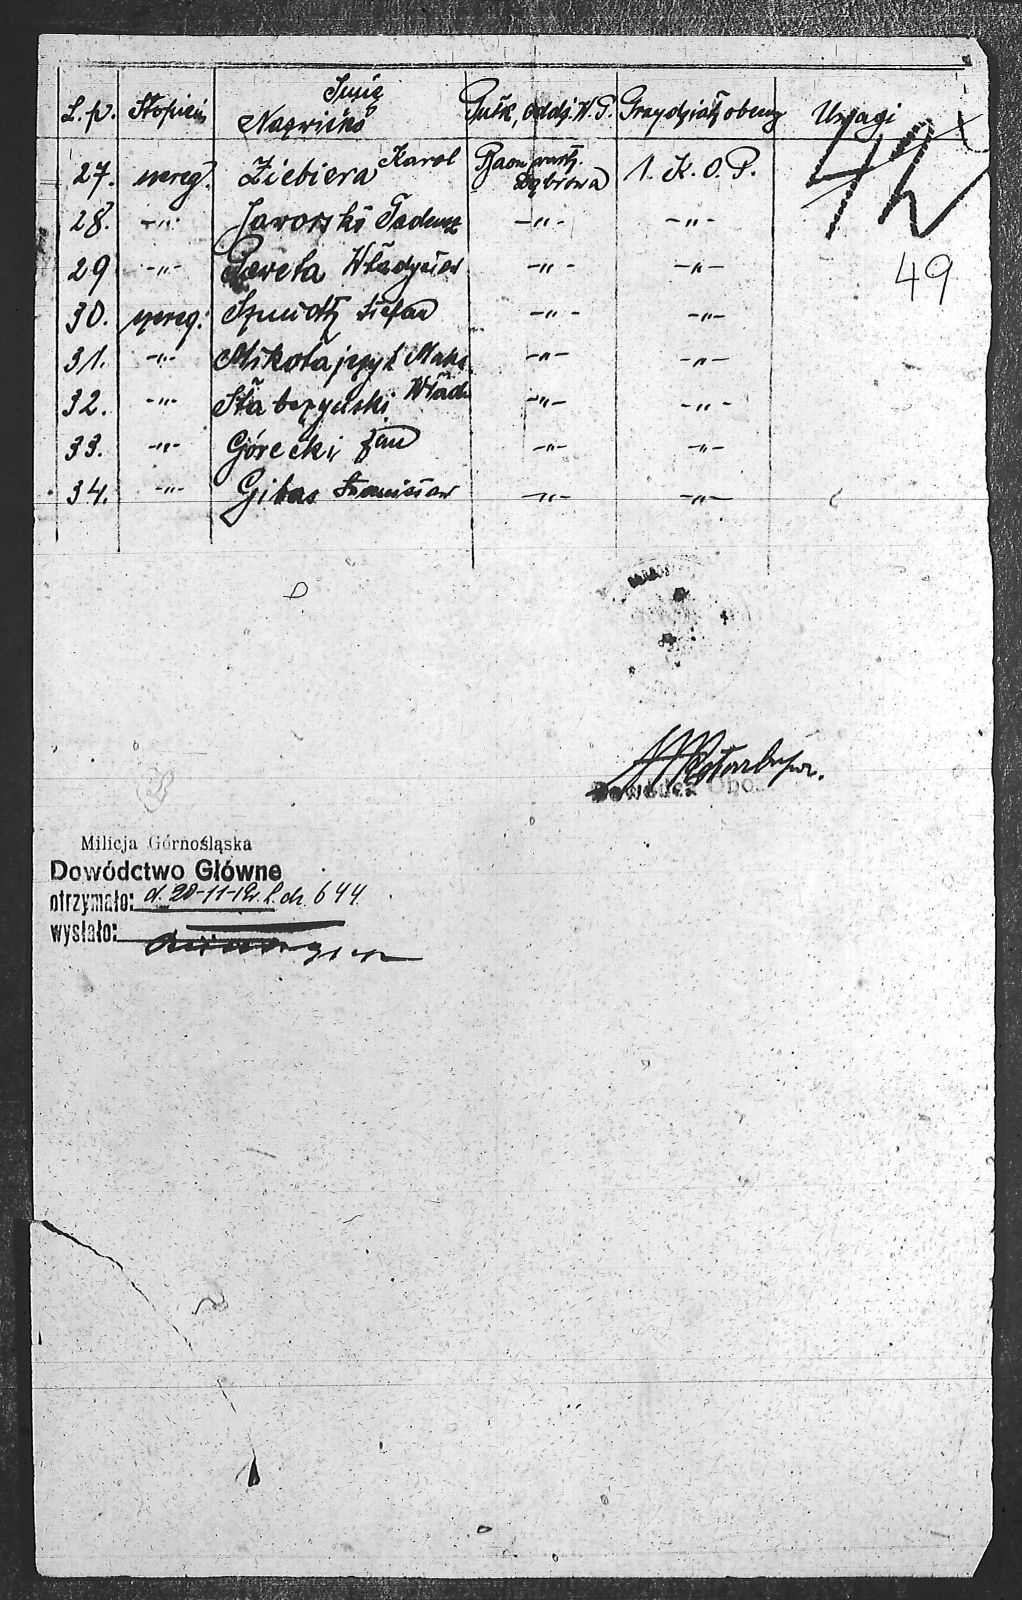 L.p. Stopień Imię Nazwisko Pułk, oddz. W.P. Przydział obecny Uwagi
27. szereg. Ziebiera Karol Baon wart. Dąbrowa 1. K. O. P. 42
28. -"- Jaworski Tadeusz -"- -"-
29 -"- Pawęta Władysław -"- -"- 49
30. szereg. Szmidt Stefan -"- -"-
31. -"- Mikołajczyk Maks. -"- -"-
32. -"- Słabczyński Wład. -"- -"-
33. -"- Górecki Jan -"- -"-
34. -"- Gibas Stanisław -"- -"-
Dowódca Oboz
Milicja Górnośląska
Dowódctwo Główne
otrzymało: d. 28-11-19 L.dz. 644
wysłało: